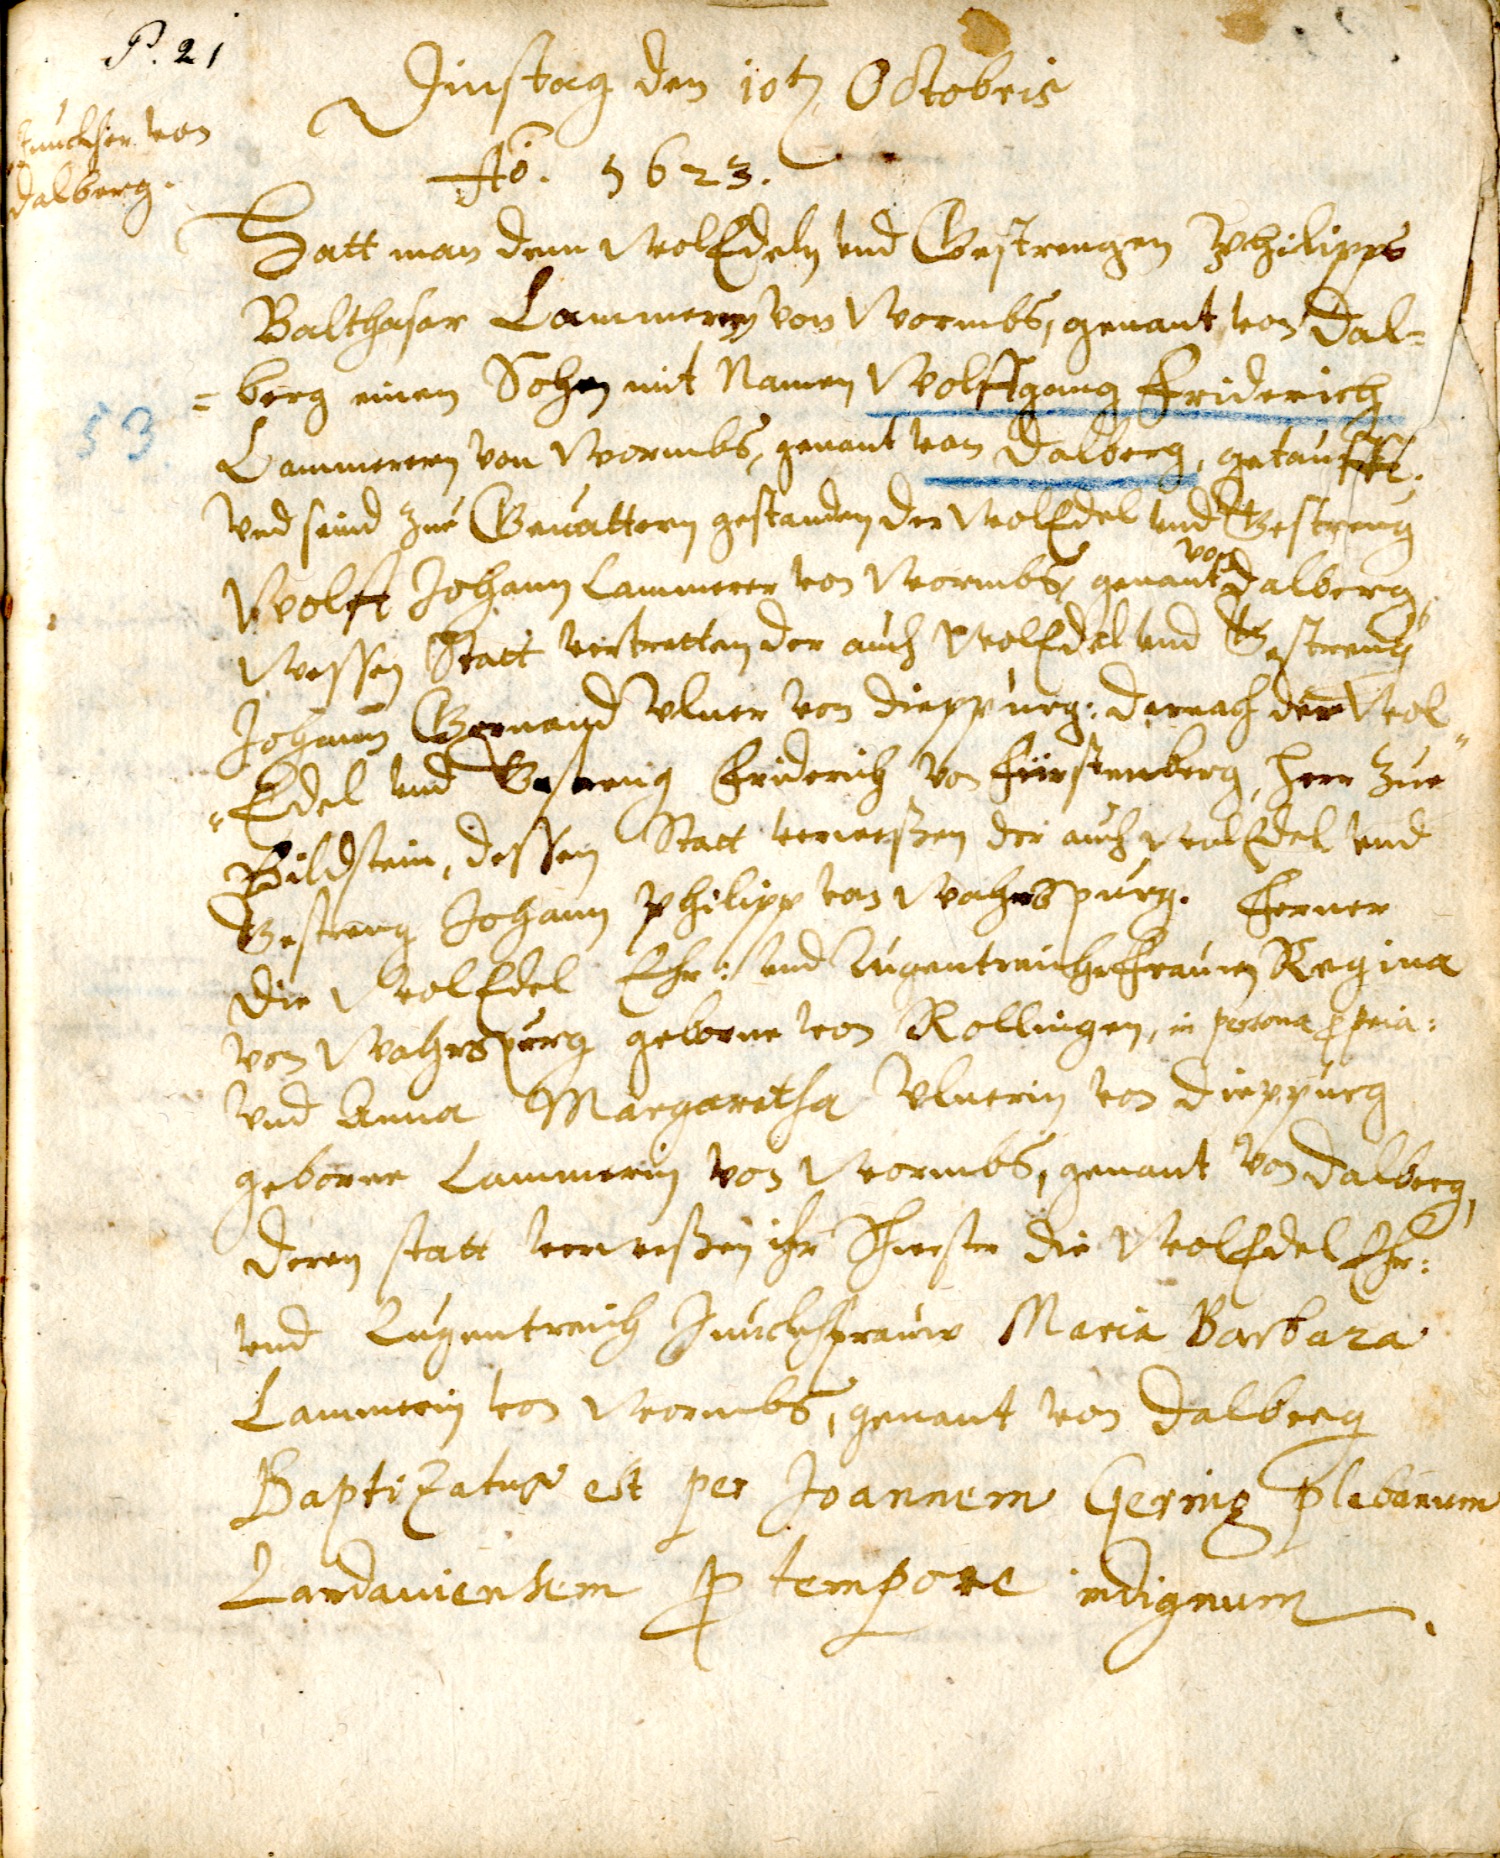 P. 21
Junckher von
Dalberg.
Dinstag den 10t Octobris
Aõ. 1623.
Hatt man dem WolEdeln vnd Gestrengen Philipps
Balthasar Cammerern von Wormbs, genant von Dal=
=berg einen Sohn mit Namen Wolffgang Friderich
53.
Cammerern von Wormbs, genant von Dalberg, getaufft,
Vnd seind zue Gevattern gestanden der WolEdel vnd Gestreng
von
Wolff Johann Cammerer von Wormbs, genant Dalberg,
Wessen Statt vertretten der auch WolEdel vnd Gestreng
Johann Gernand Vlner von Dieppurg: darnach der Wol„
„Edel vnd Gestreng Friderich von Fürstenberg, Herr zue
Bildstein, dessen Statt verweßen der auch WolEdel vnd
Gestreng Johann Philipp von Wahrspurg. Ferner
die WolEdel Ehr: vnd Tugentreiche Frauen Regina
von Wahrspurg geborne von Rollingen, in persona ppria:
Vnd Anna Margaretha Vlnerin von Dieppurg
geborne Cammerin von Wormbs, genant von Dalberg,
deren statt verweßen ihr Schwester die WolEdel Ehr:
vnd Tugentreich Junckfrauw Maria Barbara
Cammerin von Wormbs, genant von Dalberg
Baptizatus est per Joannem Gering plebanum
Landaviensem p tempore indignum.